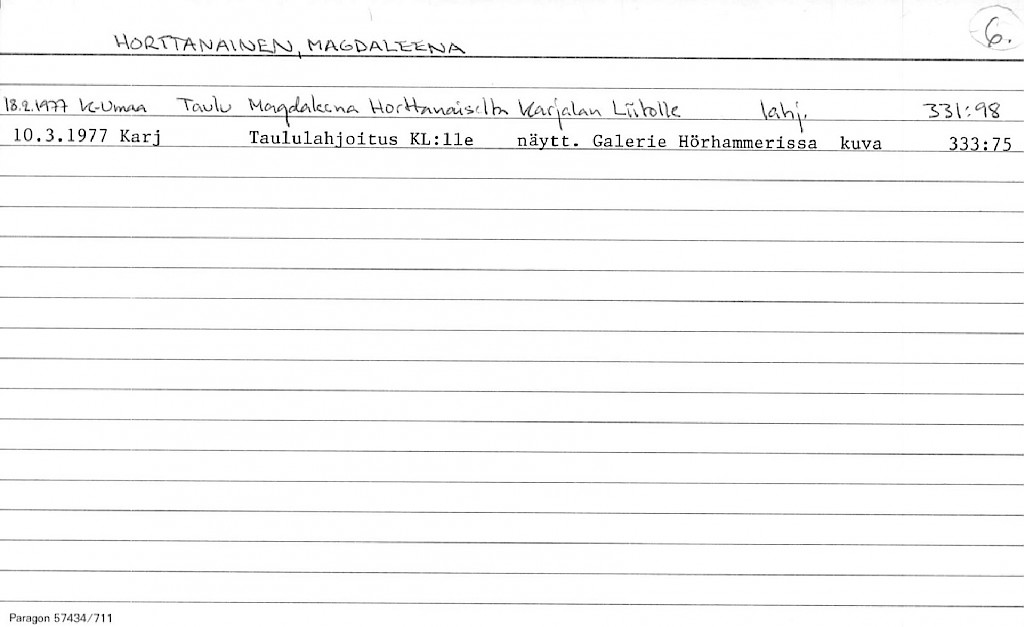 HORTTANAINEN, MAGDALEENA 6.
18.2.1977 K-Umaa Taulu Magdaleena Horttanaiselta Karjalan Liitolle lahj. 331:98
10.3.1977 Karj Taululahjoitus KL:lle näytt. Galerie Hörhammerissa kuva 333:75
Paragon 57434/711